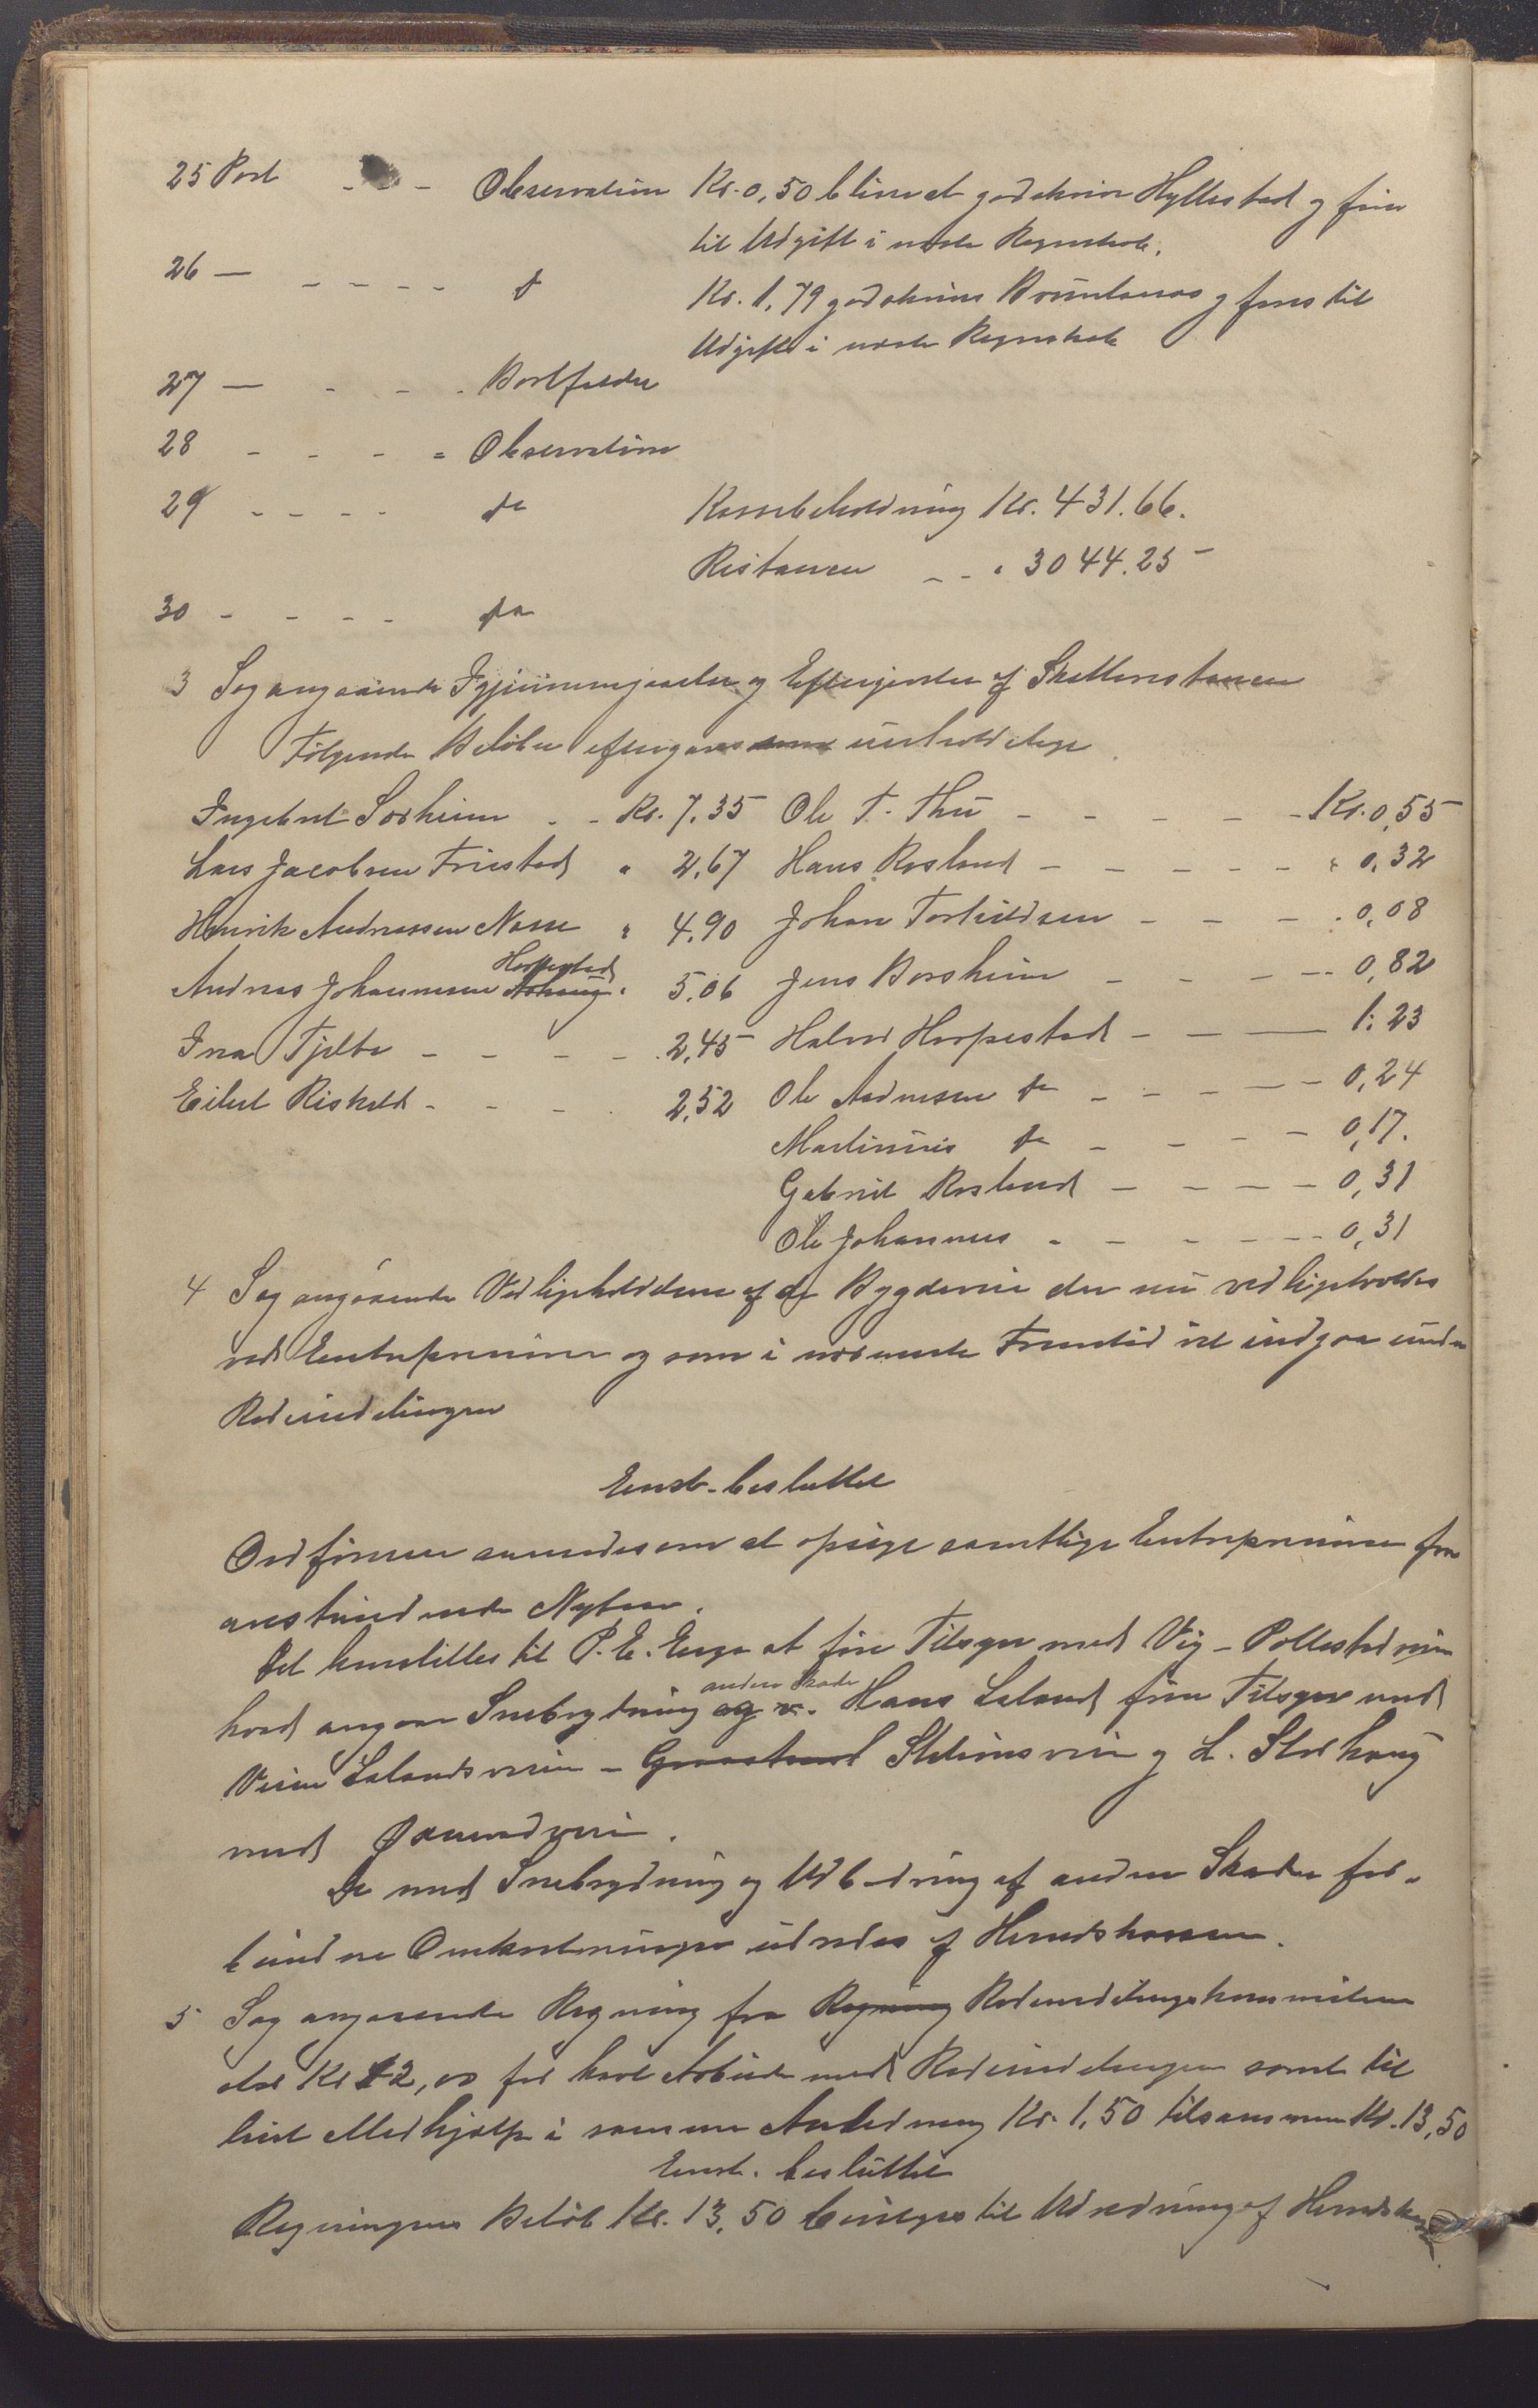 25 Post - - - Observation Kr. 0,50 blive at godskrive Hyllestad og føres
til Udgift i næste Regnskab.
26 — - - - - - do
Kr. 1,79 godskrives Bruntanæs og føres til
Udgift i næste Regnskab
27 — - - - Bortfalder
28 - - - - Observation
29 - - - - do Kassebeholdning Kr. 431.66.
Restancen - - " 3044.25
30 - - - - do
3 Sag angaaende Igjennemgaaelse og Eftergivelse af Skatterestancen
Følgende Beløbe eftergives som uerholdelige
Ingebret Sørheim - - Kr. 7,35 Ole T. Thu - - - - - Kr. 0,55
Lars Jacobsen Friestad " 2,67 Hans Rosland - - - - - " 0,32
Henrik Andreassen Næsse " 4,90 Johan Torkildsen - - - . 0,08
Horpestad
Andreas Johannessen Aahaug . 5,06 Jens Borsheim - - - - - 0,82
Ina Tjelta - - - - . 2,45 Halvor Horpestad - - — 1,23
Eilert Riskedal - - - . 2,52 Ole Andreassen do - - - - - 0,24
Martinius do - - - - 0,17.
Gabriel Rosland - - - - - 0,31
Ole Johannes - - - - - - 0,31
4 Sag angaaende Vedligeholdelsen af de Bygdeveie der nu vedligeholdes
ved Entreprenører og som i nærmeste Fremtid vil indgaa under
Rodeinddelingen
Enst. besluttet
Ordføreren anmodes om at opsige samtlige Entreprenører fra
anstundende Nytaar.
Det henstilles til P. E. Erga at føre Tilsyn med Vig - Pollestadveien
andre Skade
hvad angaar Snebrydning og v. Hans Laland føre Tilsyn med
Veien Lalandsveien - Graastend Stationsveien og L. Storhaug
med Øxnevadveien.
De med Snebrydning og Udbedring af andre Skader for-
bundne Omkostninger udredes af Herredskassen.
5 Sag angaaende Regning fra Regning Rodeinddelingskommisionen
stor Kr 12,00 for havt Arbeide med Rodeinddelingen samt til
leiet Medhjælp i samme Anledning Kr. 1,50 tilsammen Kr. 13,50
Enst. besluttet
Regningens Beløb Kr. 13,50 bevilges til Udredning af Herredskassen